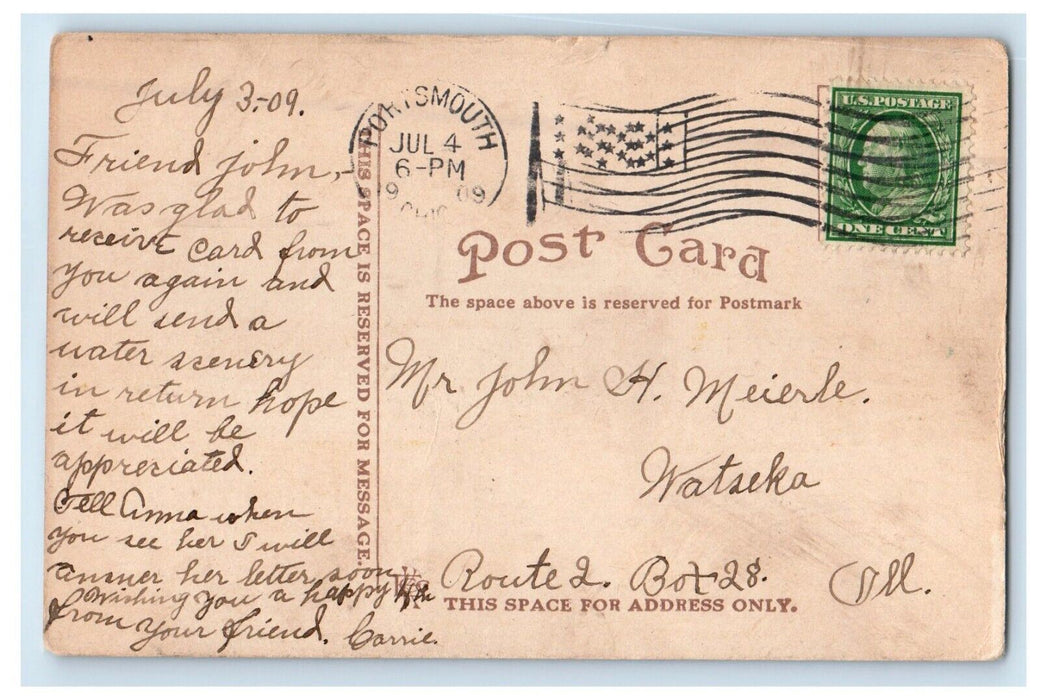 July 3-09.
Friend John,-
Was glad to
receive card from
you again and
will send a
water scenery
in return hope
it will be
appreciated.
Tell Anna when
you see her I will
answer her letter soon
Wishing you a happy 4th
from your friend. Carrie.
THIS SPACE IS RESERVED FOR MESSAGE.
PORTSMOUTH
JUL 4
6-PM
19 09
OHIO
U.S. POSTAGE
ONE CENT
Post Card
The space above is reserved for Postmark
Mr John H. Meierle.
Watseka
Route 2. Box 28. Ill.
THIS SPACE FOR ADDRESS ONLY.